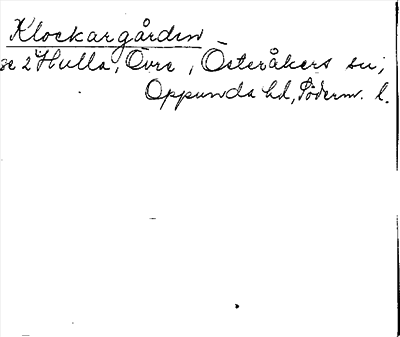 Klockargården
se 2 Hulla, Övre, Österåkers sn,
Oppunda hd, Söderm. l.